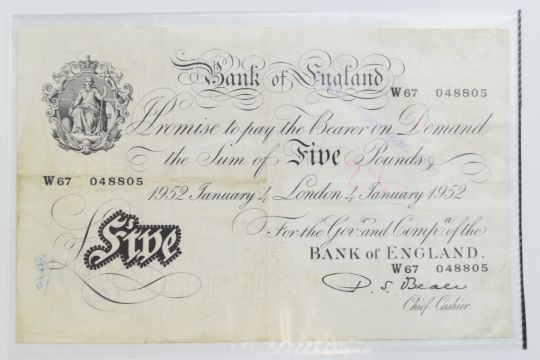 Bank of England
W67 048805
Promise to pay the Bearer on Demand
the Sum of Five Pounds
W67 048805
1952 January 4 London 4 January 1952
For the Gov.r and Comp.a of the
BANK OF ENGLAND.
W67 048805
£Five
P. S. Beale
Chief Cashier.